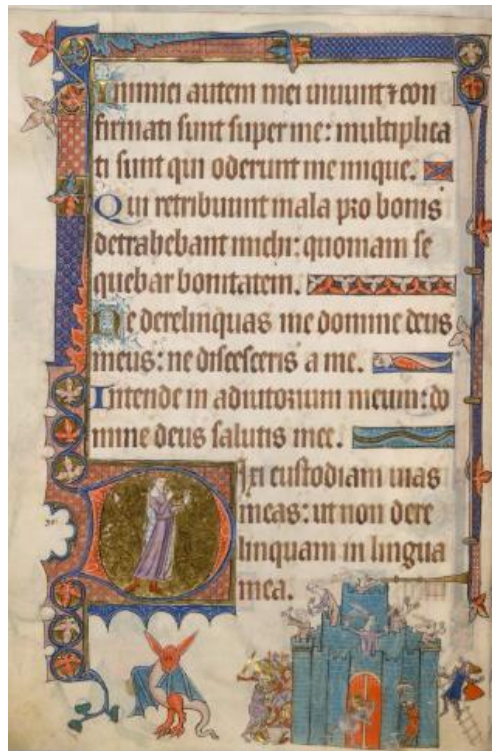 Inimici autem mei uiuunt ⁊ con
firmati sunt super me: multiplica
ti sunt qui oderunt me inique.
Qui retribuunt mala pro bonis
detrahebant michi: quoniam se
quebar bonitatem.
Ne derelinquas me domine deus
meus: ne discesseris a me.
Intende in adiutorium meum: do
mine deus salutis mee.
Dixi custodiam uias
meas: ut non dere
linquam in lingua
mea.